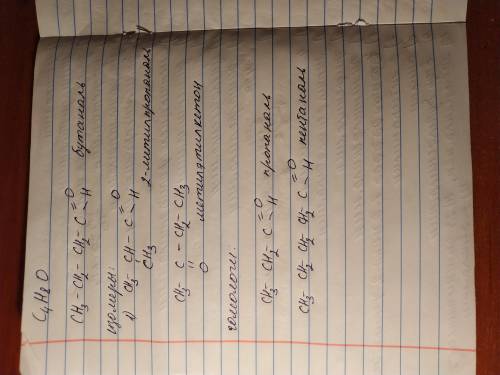 C4H8O
CH3 - CH2 - CH2 - C = O
- H бутаналь
изомеры
1) CH3 - CH - C = O
CH3 - H 2-метилпропаналь
CH3 - C - CH2 - CH3
= O метилэтилкетон
гомологи:
CH3 CH2 C = O
- H пропаналь
CH3 CH2 CH2 CH2 C = O
- H пентаналь